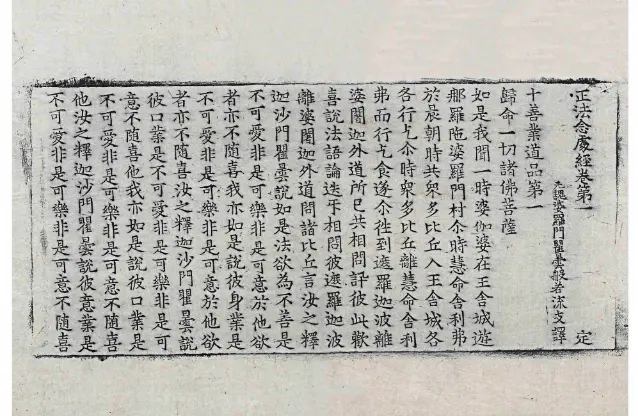 正法念處經卷第一
元魏婆羅門瞿曇般若流支譯 定
十善業道品第一
歸命一切諸佛菩薩
如是我聞一時婆伽婆在王舍城遊
那羅陁婆羅門村尒時慧命舍利弗
於晨朝時共衆多比丘入王舍城各
各行乞尒時衆多比丘離慧命舍利
弗而行乞食遂尒徃到遮羅迦波離
婆闍迦外道所已共相問訊彼此歡
喜說法語論迭乎相問彼遮羅迦波
離婆闍迦外道問諸比丘言汝之釋
迦沙門瞿曇說如是法欲為不善是
不可愛非是可樂非是可意於他欲
者亦不隨喜我亦如是說彼身業是
不可愛非是可樂非是可意於他欲
者亦不隨喜汝之釋迦沙門瞿曇說
彼口業是不可愛非是可樂非是可
意不隨喜他我亦如是說彼口業是
不可愛非是可樂非是可意不隨喜
他汝之釋迦沙門瞿曇說彼意業是
不可愛非是可樂非是可意不隨喜